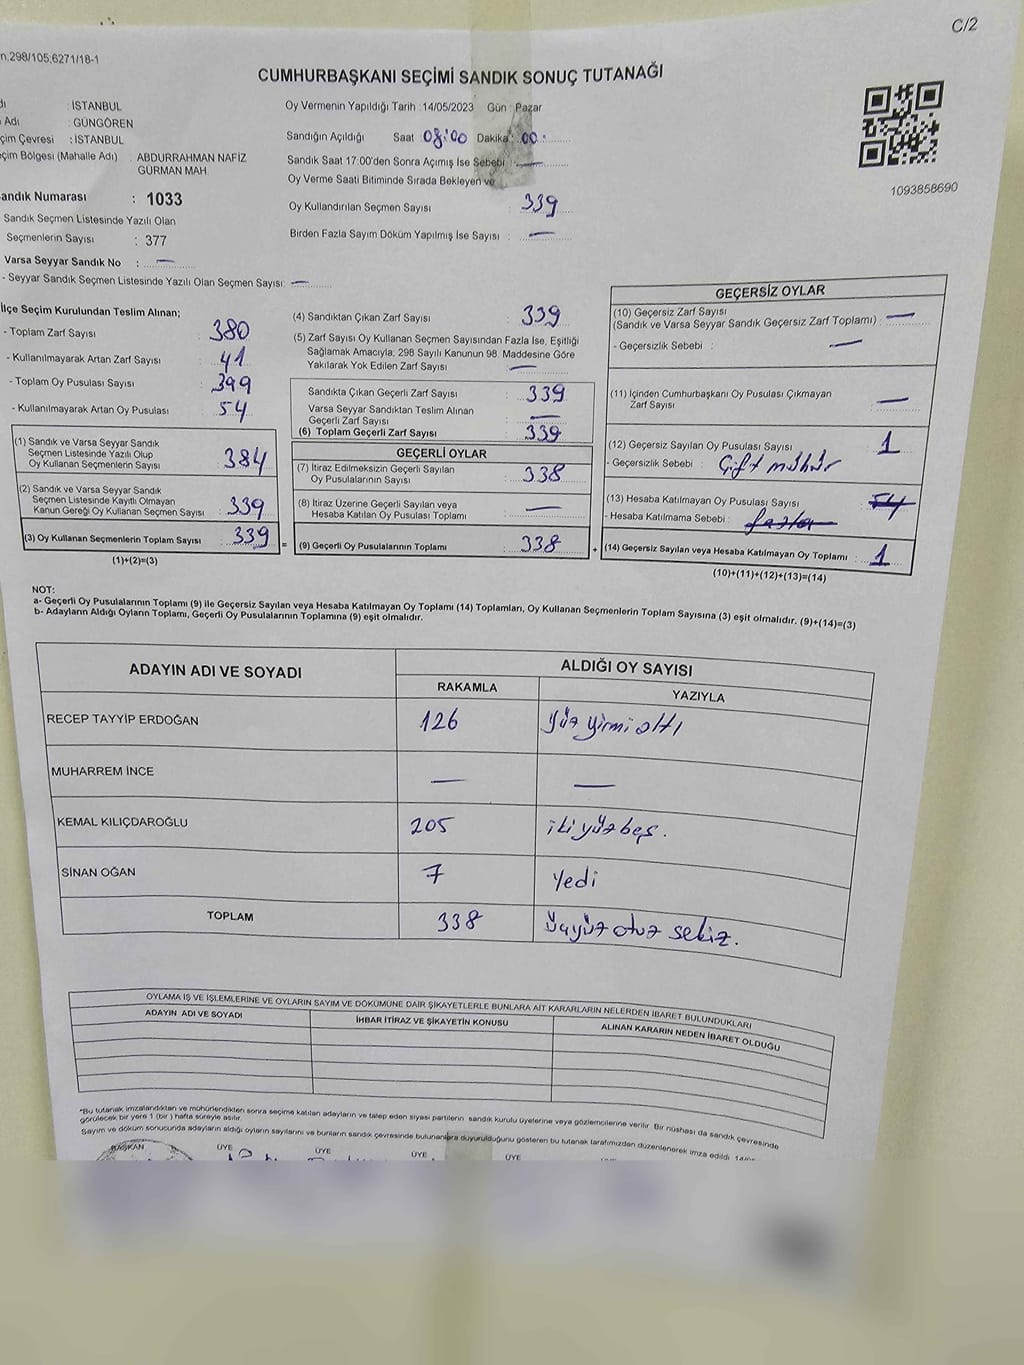 C/2
n.298/105;6271/18-1
CUMHURBAŞKANI SEÇİMİ SANDIK SONUÇ TUTANAĞI
1093858690
: İSTANBUL
Adı : GÜNGÖREN
çim Çevresi : İSTANBUL
çim Bölgesi (Mahalle Adı) : ABDURRAHMAN NAFİZ
GÜRMAN MAH
andık Numarası : 1033
Sandık Seçmen Listesinde Yazılı Olan
Seçmenlerin Sayısı : 377
Varsa Seyyar Sandık No : —
- Seyyar Sandık Seçmen Listesinde Yazılı Olan Seçmen Sayısı: —
Oy Vermenin Yapıldığı Tarih :14/05/2023 Gün : Pazar
Sandığın Açıldığı Saat 08:00 Dakika : 00
Sandık Saat 17:00'den Sonra Açımış İse Sebebi : —
Oy Verme Saati Bitiminde Sırada Bekleyen ve
Oy Kullandırılan Seçmen Sayısı : 339
Birden Fazla Sayım Döküm Yapılmış İse Sayısı : —
İlçe Seçim Kurulundan Teslim Alınan;
- Toplam Zarf Sayısı : 380
- Kullanılmayarak Artan Zarf Sayısı : 41
- Toplam Oy Pusulası Sayısı : 399
- Kullanılmayarak Artan Oy Pusulası : 54
(1) Sandık ve Varsa Seyyar Sandık
Seçmen Listesinde Yazılı Olup
Oy Kullanan Seçmenlerin Sayısı : 384
(2) Sandık ve Varsa Seyyar Sandık
Seçmen Listesinde Kayıtlı Olmayan
Kanun Gereği Oy Kullanan Seçmen Sayısı : 339
(3) Oy Kullanan Seçmenlerin Toplam Sayısı : 339 =
(1)+(2)=(3)
(4) Sandıktan Çıkan Zarf Sayısı : 339
(5) Zarf Sayısı Oy Kullanan Seçmen Sayısından Fazla İse, Eşitliği
Sağlamak Amacıyla, 298 Sayılı Kanunun 98. Maddesine Göre
Yakılarak Yok Edilen Zarf Sayısı : —
Sandıkta Çıkan Geçerli Zarf Sayısı : 339
Varsa Seyyar Sandıktan Teslim Alınan
Geçerli Zarf Sayısı : —
(6) Toplam Geçerli Zarf Sayısı : 339
GEÇERLİ OYLAR
(7) İtiraz Edilmeksizin Geçerli Sayılan
Oy Pusulalarının Sayısı : 338
(8) İtiraz Üzerine Geçerli Sayılan veya
Hesaba Katılan Oy Pusulası Toplamı : —
(9) Geçerli Oy Pusulalarının Toplamı : 338 +
GEÇERSİZ OYLAR
(10) Geçersiz Zarf Sayısı
(Sandık ve Varsa Seyyar Sandık Geçersiz Zarf Toplamı) : —
- Geçersizlik Sebebi : —
(11) İçinden Cumhurbaşkanı Oy Pusulası Çıkmayan
Zarf Sayısı : —
(12) Geçersiz Sayılan Oy Pusulası Sayısı : 1
- Geçersizlik Sebebi : Çift mühür
(13) Hesaba Katılmayan Oy Pusulası Sayısı : 54
- Hesaba Katılmama Sebebi : fazla
(14) Geçersiz Sayılan veya Hesaba Katılmayan Oy Toplamı : 1
(10)+(11)+(12)+(13)=(14)
NOT:
a- Geçerli Oy Pusulalarının Toplamı (9) ile Geçersiz Sayılan veya Hesaba Katılmayan Oy Toplamı (14) Toplamları, Oy Kullanan Seçmenlerin Toplam Sayısına (3) eşit olmalıdır. (9)+(14)=(3)
b- Adayların Aldığı Oyların Toplamı, Geçerli Oy Pusulalarının Toplamına (9) eşit olmalıdır.
ADAYIN ADI VE SOYADI ALDIĞI OY SAYISI
RAKAMLA YAZIYLA
RECEP TAYYİP ERDOĞAN 126 Yüz yirmi altı
MUHARREM İNCE — —
KEMAL KILIÇDAROĞLU 205 iki yüz beş.
SİNAN OĞAN 7 Yedi
TOPLAM 338 Üçyüz otuz sekiz.
OYLAMA İŞ VE İŞLEMLERİNE VE OYLARIN SAYIM VE DÖKÜMÜNE DAİR ŞİKAYETLERLE BUNLARA AİT KARARLARIN NELERDEN İBARET BULUNDUKLARI
ADAYIN ADI VE SOYADI İHBAR İTİRAZ VE ŞİKAYETİN KONUSU ALINAN KARARIN NEDEN İBARET OLDUĞU
*Bu tutanak imzalandıktan ve mühürlendikten sonra seçime katılan adayların ve talep eden siyasi partilerin sandık kurulu üyelerine veya gözlemcilerine verilir. Bir nüshası da sandık çevresinde
görülecek bir yere 1 (bir ) hafta süreyle asılır.
Sayım ve döküm sonucunda adayların aldığı oyların sayılarını ve bunların sandık çevresinde bulunanlara duyurulduğunu gösteren bu tutanak tarafımızdan düzenlenerek imza edildi.
BAŞKAN ÜYE ÜYE ÜYE ÜYE